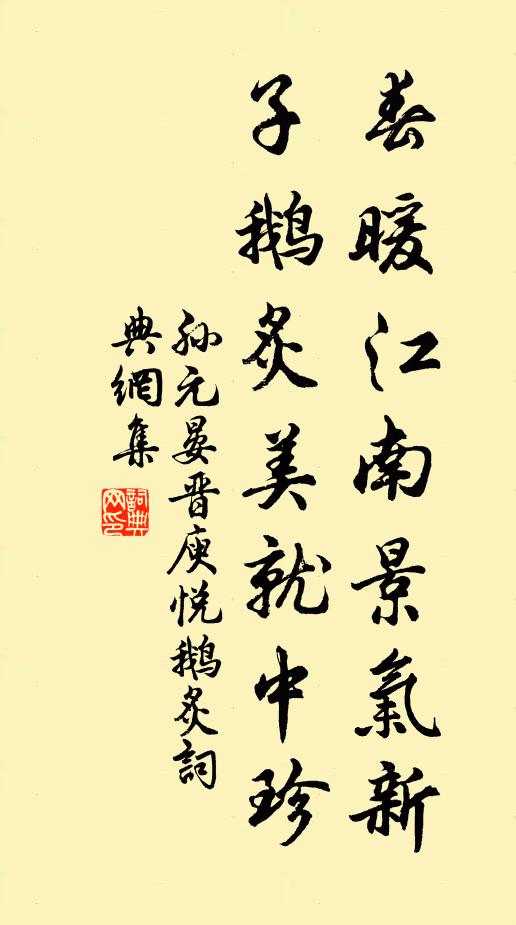 春暖江南景氣新
子鵝炙美就中珍
孙元晏晋庾悦鵝炙詞
典網集
詞典网印